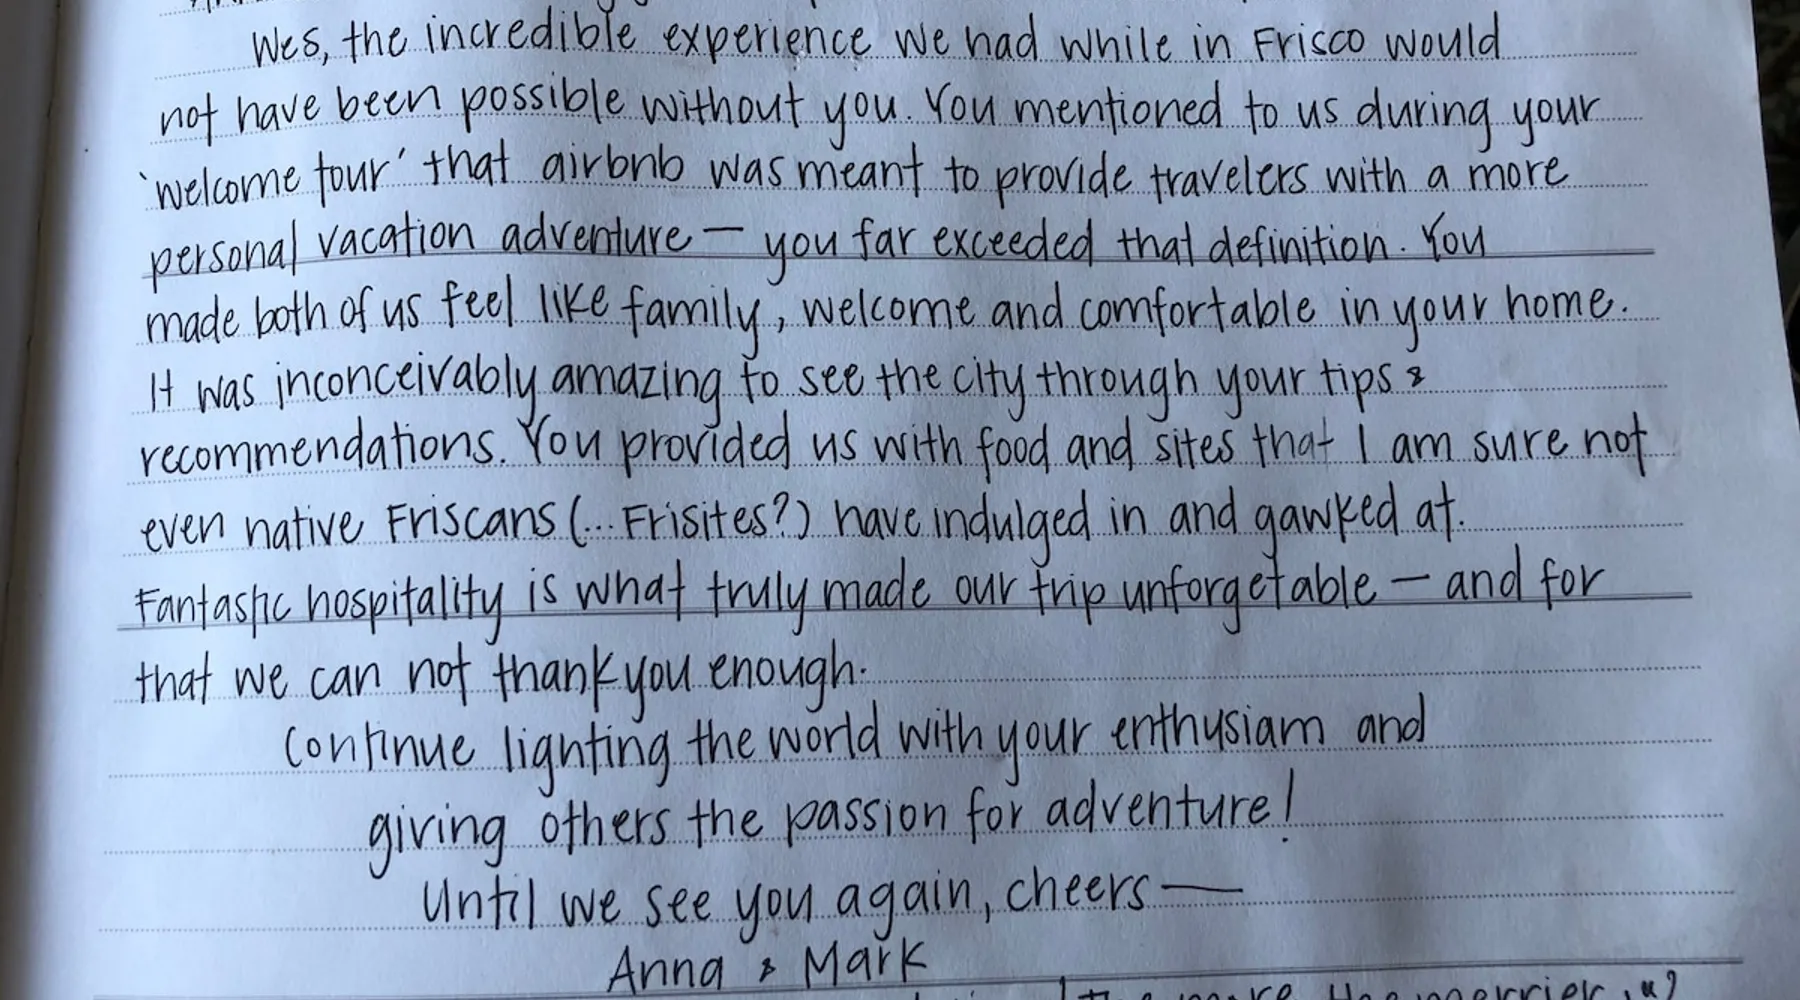 Wes, the incredible experience we had while in Frisco would
not have been possible without you. You mentioned to us during your
'welcome tour' that airbnb was meant to provide travelers with a more
personal vacation adventure — you far exceeded that definition. You
made both of us feel like family, welcome and comfortable in your home.
It was inconceivably amazing to see the city through your tips &
recommendations. You provided us with food and sites that I am sure not
even native Friscans (... Frisites?) have indulged in and gawked at.
Fantastic hospitality is what truly made our trip unforgetable — and for
that we can not thank you enough.
Continue lighting the world with your enthysiam and
giving others the passion for adventure!
Until we see you again, cheers —
Anna & Mark
the more the merrier